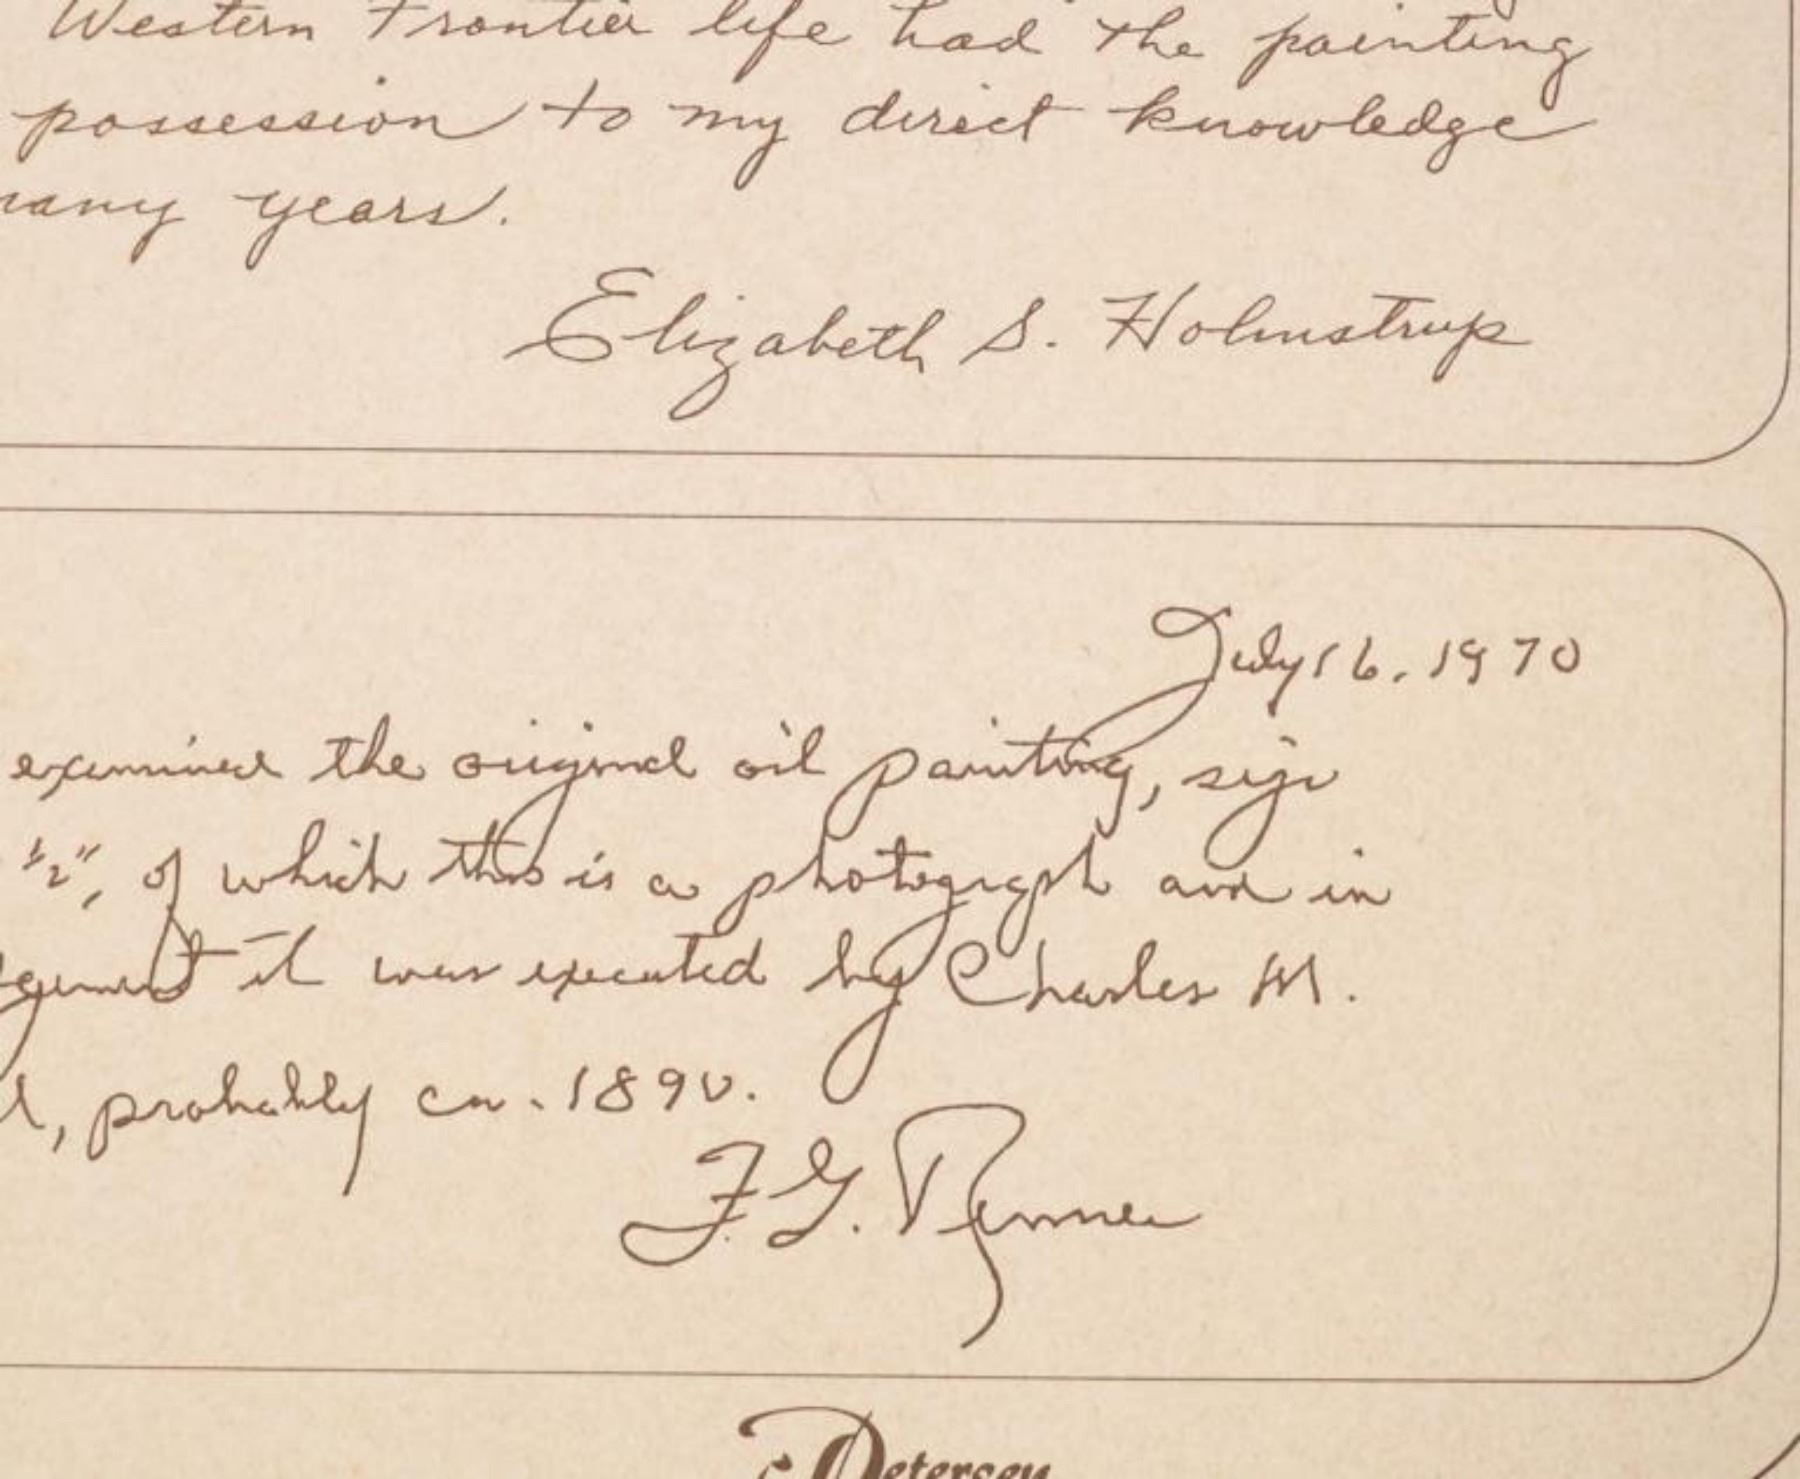 Western Frontier life had the painting
possession to my direct knowledge
many years.
Elizabeth S. Holmstrup
July 16, 1970
examined the original oil painting, size
1/2", of which this is a photograph and in
it was executed by Charles M.
, probably ca. 1890.
F. G. Renner
Petersen